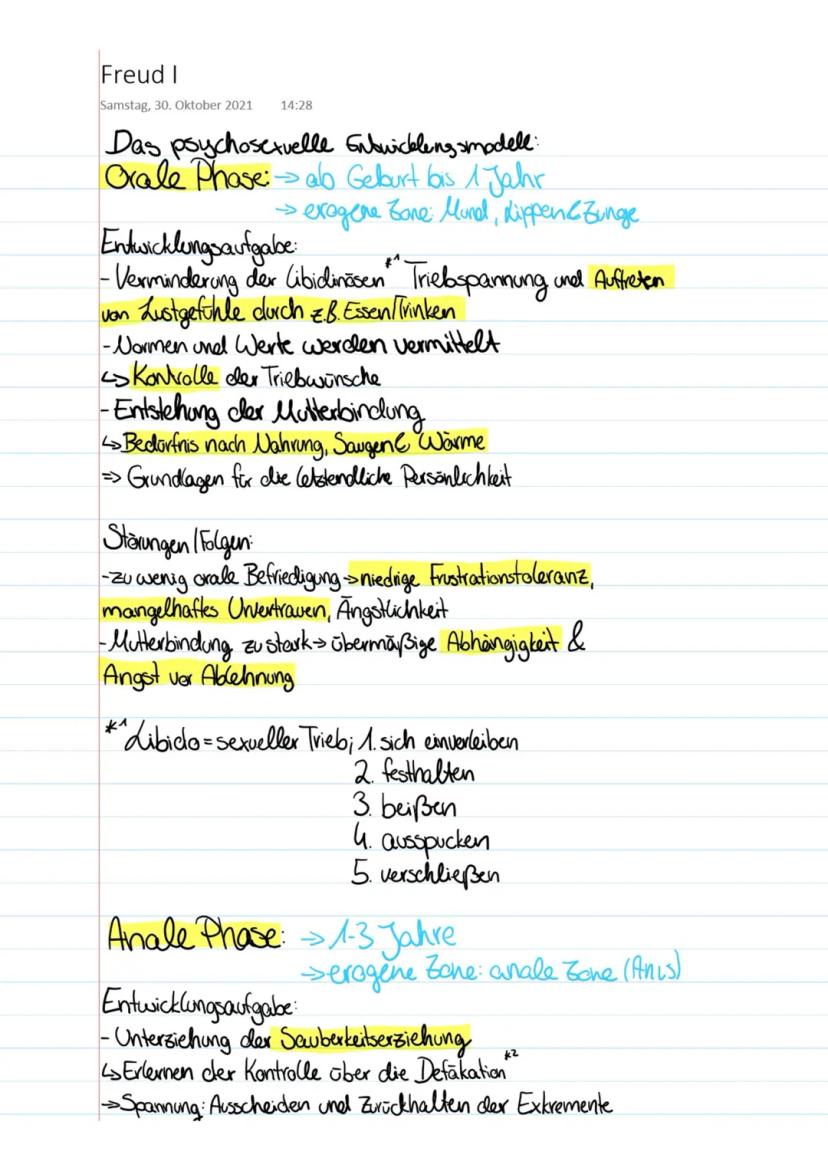 Freud I
Samstag, 30. Oktober 2021 14:28
Das psychosexuelle Entwicklungsmodell:
Orale Phase: → ab Geburt bis 1 Jahr
→ erogene Zone: Mund, Lippen & Zunge
Entwicklungsaufgabe:
- Verminderung der libidinösen *1 Triebspannung und Auftreten
von Lustgefühle durch z.B. Essen/Trinken
- Normen und Werte werden vermittelt
↳ Kontrolle der Triebwünsche
- Entstehung der Mutterbindung
↳ Bedürfnis nach Nahrung, Saugen & Wärme
=> Grundlagen für die letztendliche Persönlichkeit
Störungen/Folgen:
- zu wenig orale Befriedigung → niedrige Frustrationstoleranz,
mangelhaftes Urvertrauen, Ängstlichkeit
- Mutterbindung zu stark → übermäßige Abhängigkeit &
Angst vor Ablehnung
*1 Libido = sexueller Trieb; 1. sich einverleiben
2. festhalten
3. beißen
4. ausspucken
5. verschließen
Anale Phase: → 1-3 Jahre
→ erogene Zone: anale Zone (Anus)
Entwicklungsaufgabe:
- Unterziehung der Sauberkeitserziehung
↳ Erlernen der Kontrolle über die Defäkation *2
→ Spannung: Ausscheiden und Zurückhalten der Exkremente